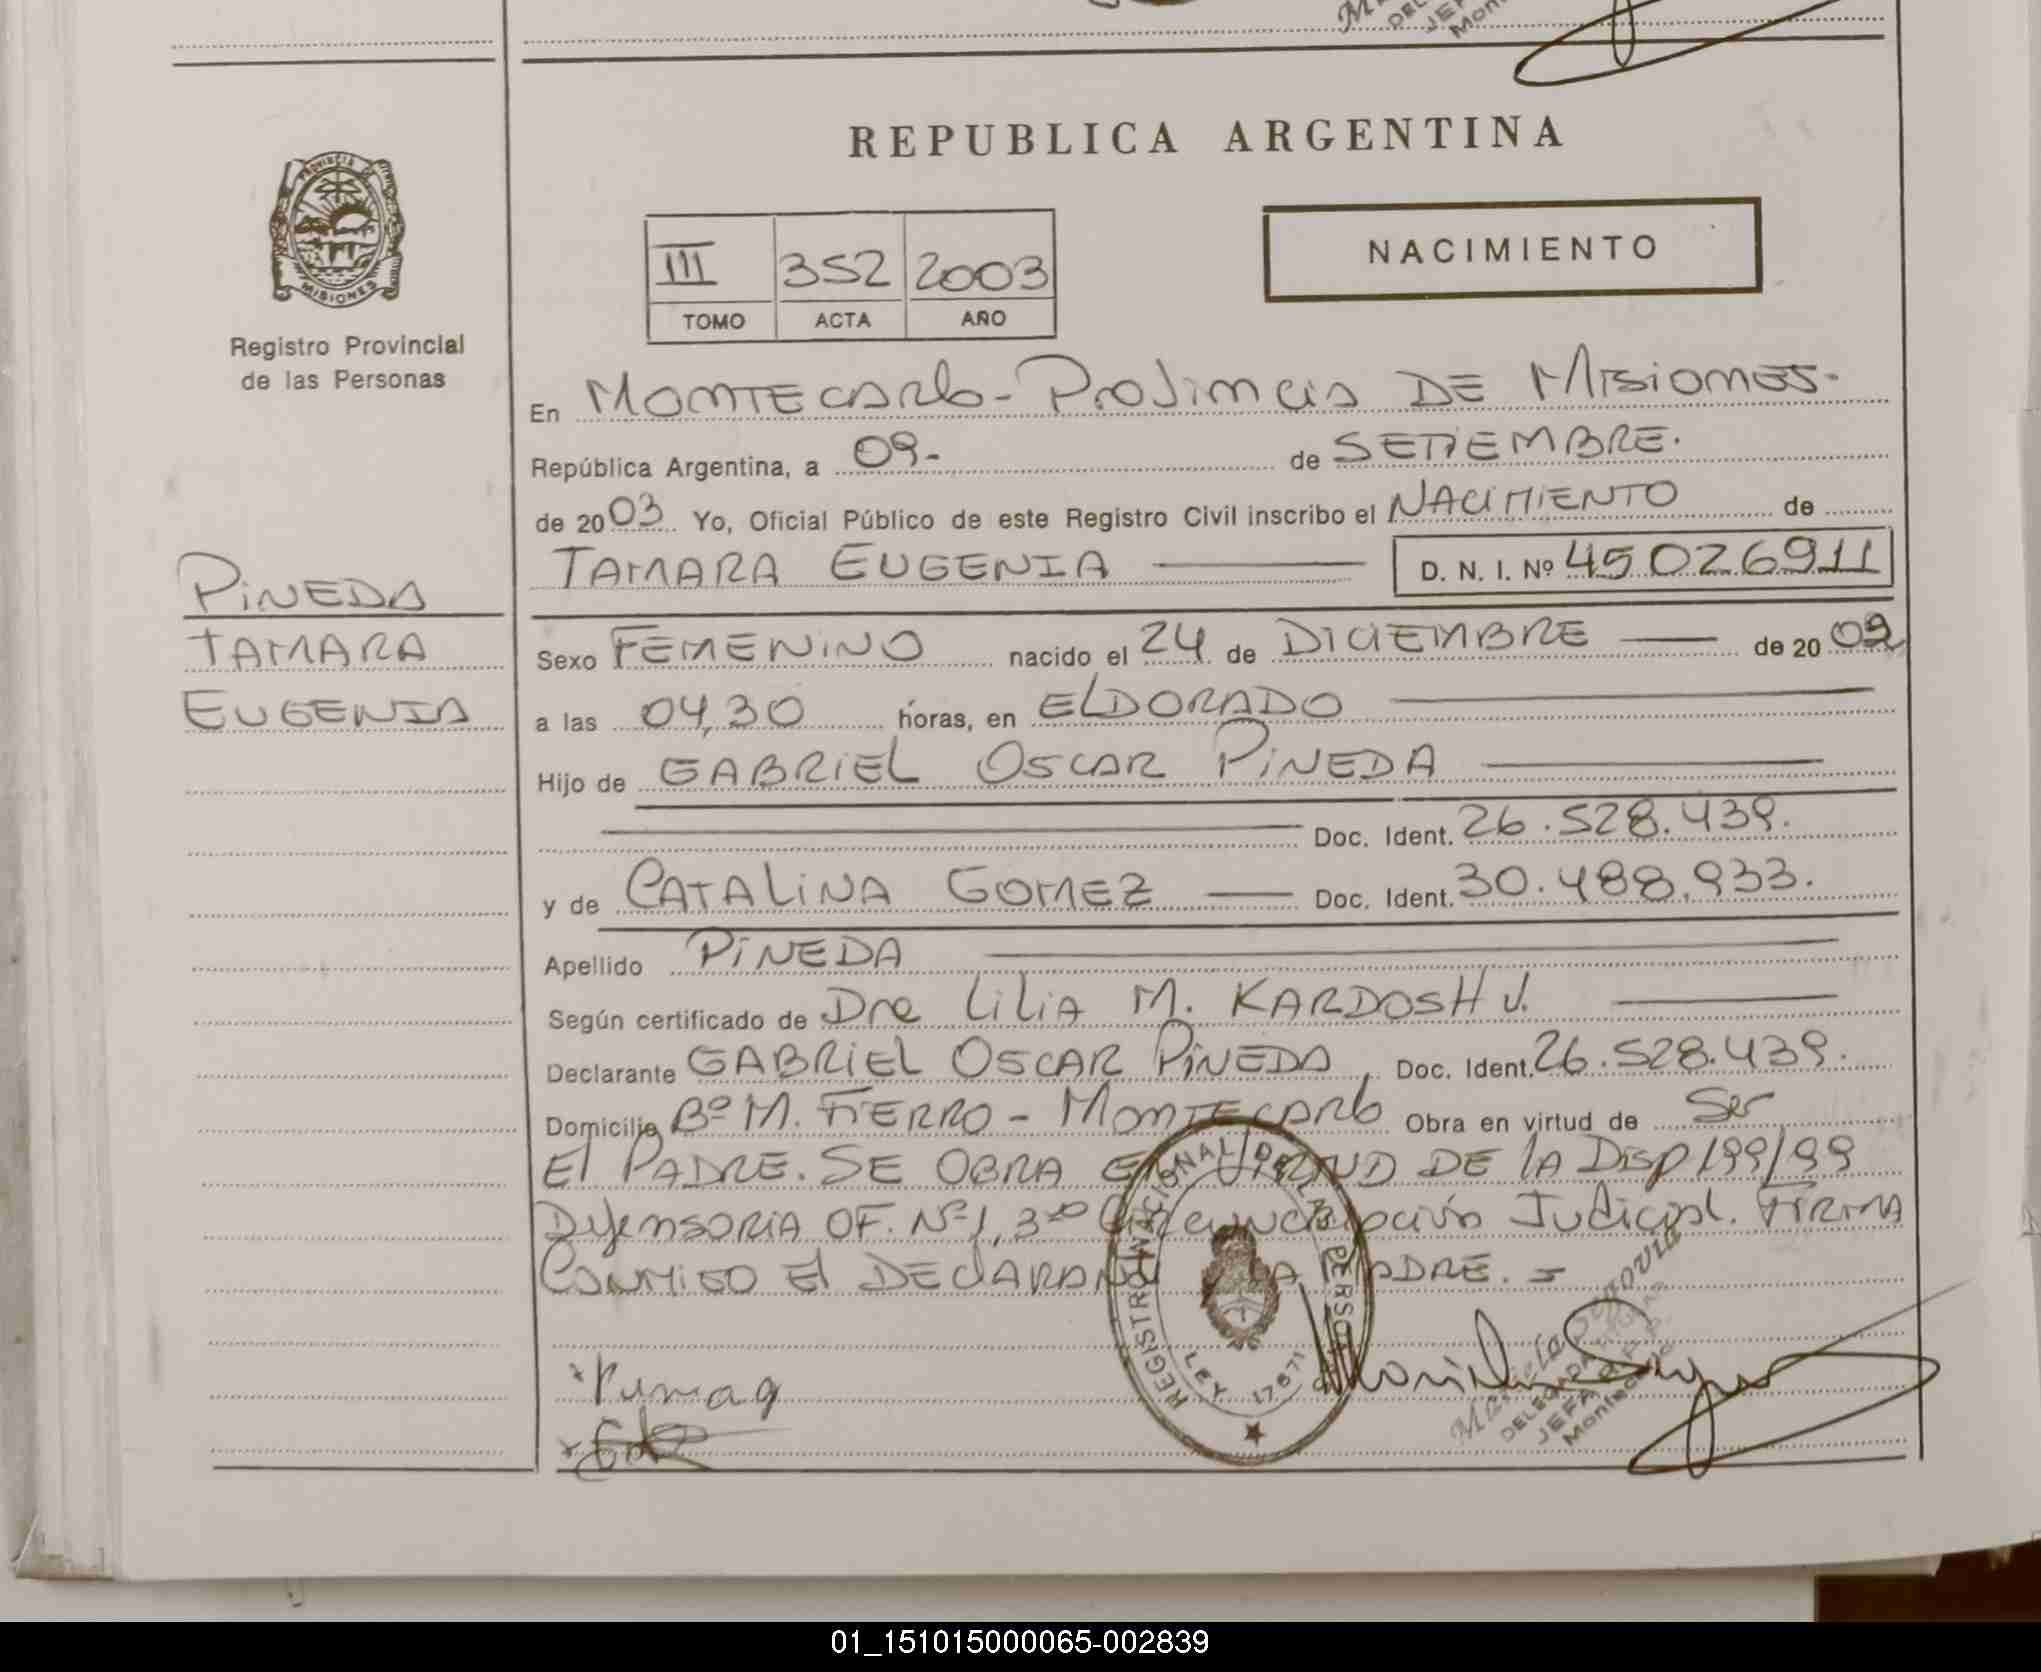 REPUBLICA ARGENTINA
PROVINCIA DE
MISIONES
Registro Provincial
de las Personas
III 352 2003
TOMO ACTA AÑO
NACIMIENTO
En MONTECARlo - Provincia DE Misiones.
República Argentina, a 09- de SETIEMBRE.
de 2003 Yo, Oficial Público de este Registro Civil inscribo el NACIMIENTO de
TAMARA EUGENIA D. N. I. Nº 45026911
PINEDA
TAMARA
EUGENIA
Sexo FEMENINO nacido el 24 de DICIEMBRE de 2002
a las 04,30 horas, en ELDORADO
Hijo de GABRIEL OSCAR PINEDA
Doc. Ident. 26.528.439.
y de CATALINA GOMEZ Doc. Ident. 30.488.933.
Apellido PINEDA
Según certificado de Dra LILIA M. KARDOSH V.
Declarante GABRIEL OSCAR PINEDA, Doc. Ident. 26.528.439.
Domicilio Bº M. FIERRO - MONTECARlo Obra en virtud de Ser
El PADRE. SE OBRA EN VIRTUD DE lA DISP 199/99
DefENSORIA OF. Nº 1, 3ra Circunscripción Judicial. FIRMA
CONMIGO El DEClARANTE Y LA MADRE. =
REGISTRO NACIONAL DE LAS PERSONAS
LEY 17671
Mariela
DELEGADA
JEFA